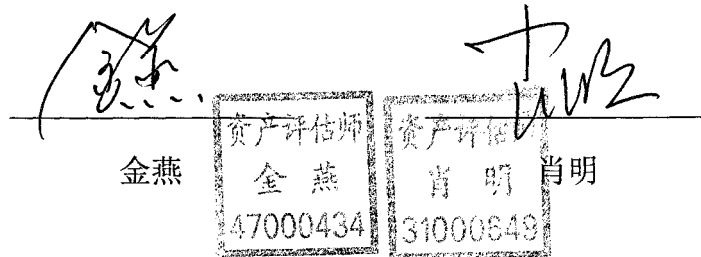 金燕
资产评估师
金燕
47000434
资产评估师
肖明
31000649
肖明